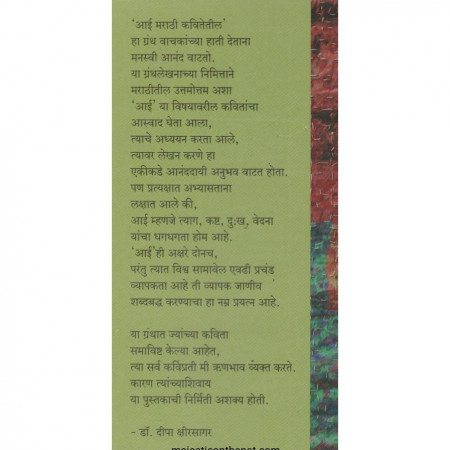 ‘आई मराठी कवितेतील’
हा ग्रंथ वाचकांच्या हाती देताना
मनस्वी आनंद वाटतो.
या ग्रंथलेखनाच्या निमित्ताने
मराठीतील उत्तमोत्तम अशा
‘आई’ या विषयावरील कवितांचा
आस्वाद घेता आला,
त्याचे अध्ययन करता आले,
त्यावर लेखन करणे हा
एकीकडे आनंददायी अनुभव वाटत होता.
पण प्रत्यक्षात अभ्यासताना
लक्षात आले की,
आई म्हणजे त्याग, कष्ट, दु:ख, वेदना
यांचा धगधगता होम आहे.
‘आई’ही अक्षरे दोनच,
परंतु त्यात विश्व सामावेल एवढी प्रचंड
व्यापकता आहे ती व्यापक जाणीव
शब्दबद्ध करण्याचा हा नम्र प्रयत्न आहे.
या ग्रंथात ज्यांच्या कविता
समाविष्ट केल्या आहेत,
त्या सर्व कविंप्रती मी ऋणभाव व्यक्त करते.
कारण त्यांच्याशिवाय
या पुस्तकाची निर्मिती अशक्य होती.
- डॉ. दीपा क्षीरसागर
majesticonthenet.com